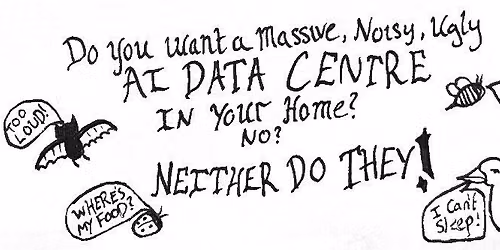 Do You Want a Massive, Noisy, Ugly
AI DATA CENTRE
IN Your Home?
NO?
NEITHER DO THEY!
TOO
LOUD!
WHERE'S
MY FOOD?
I Can't
Sleep!